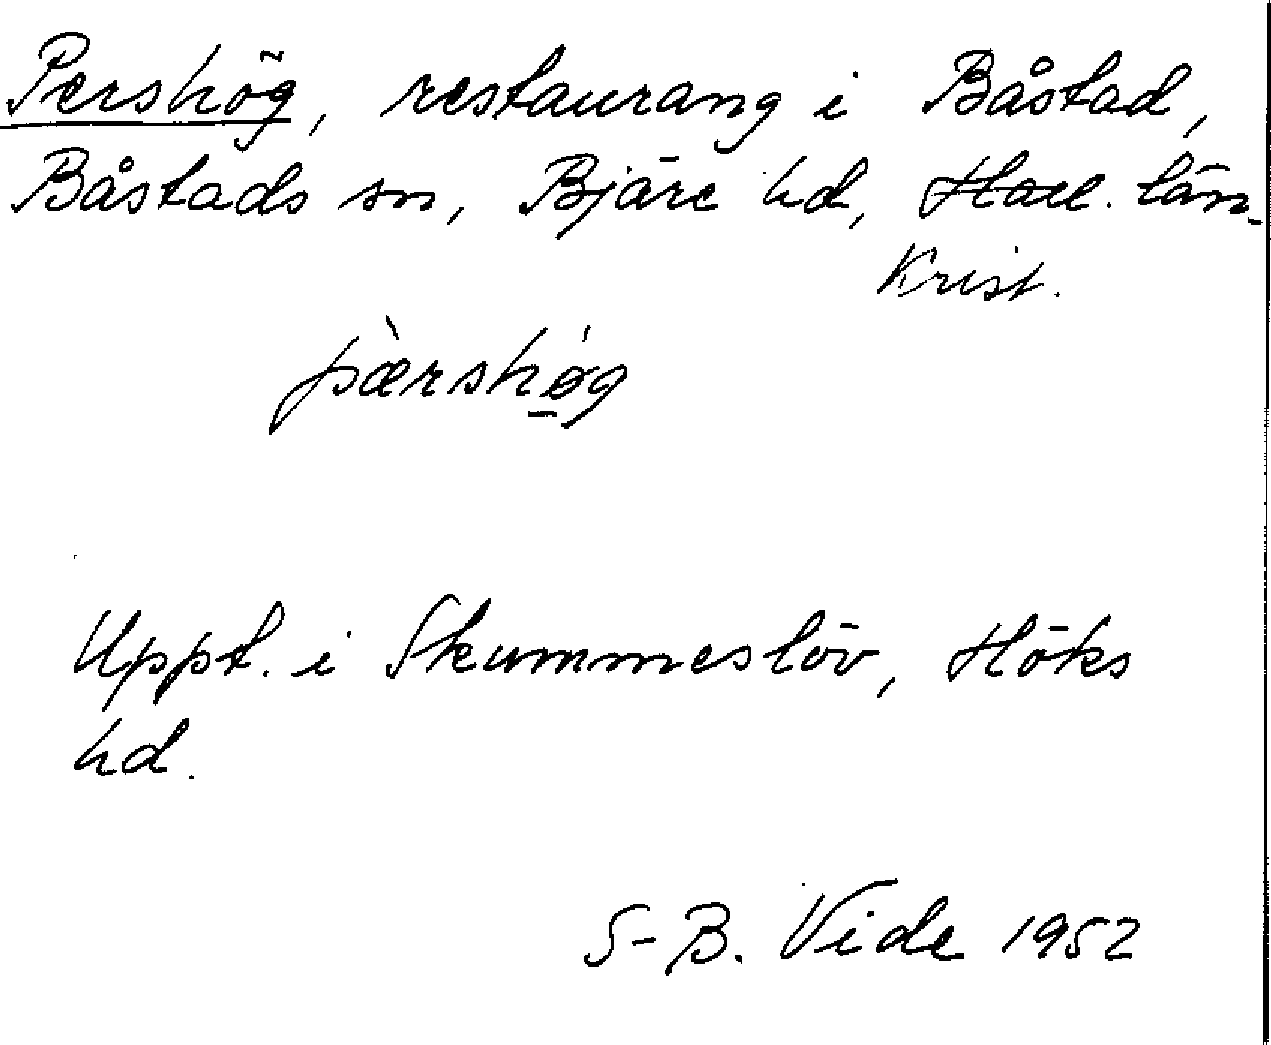 Pershög, restaurang i Båstad,
Båstads sn, Bjäre hd, Hall. län.
Krist.
pæ̀rshǿ̲g
Uppt. i Skummeslöv, Höks
hd.
S-B. Vide 1952